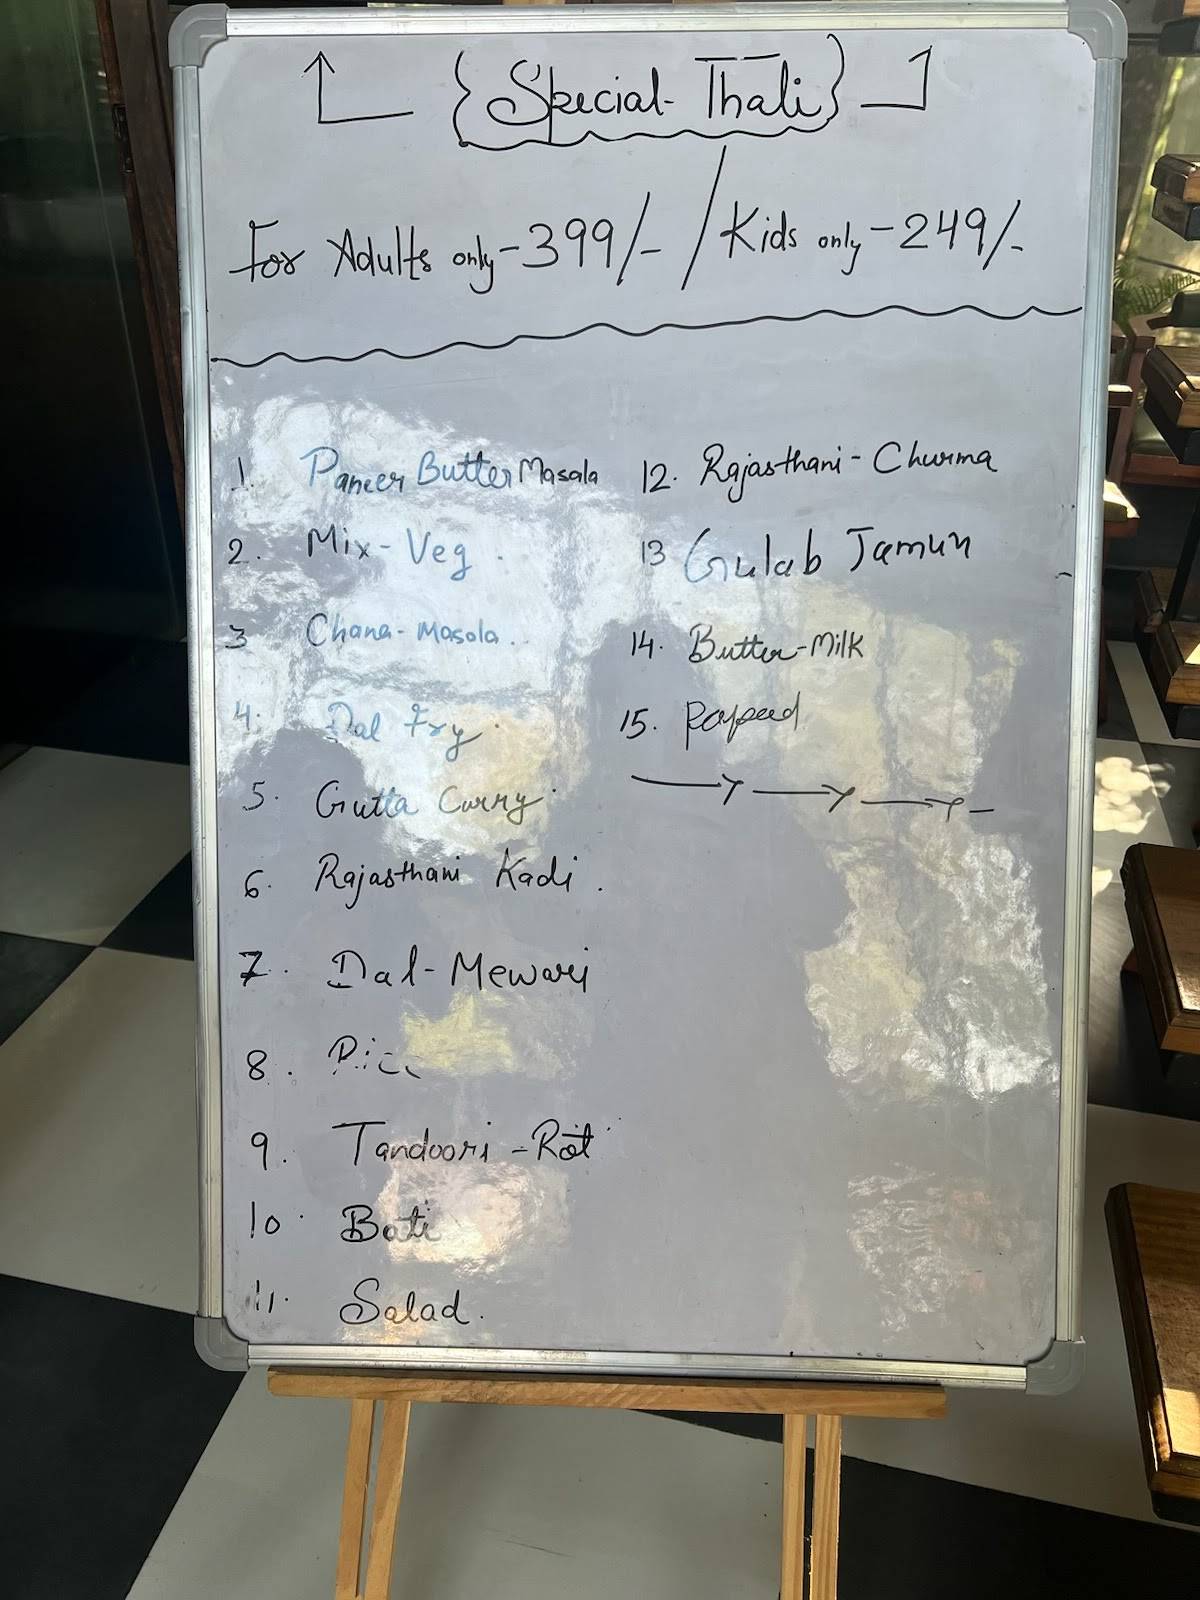 {Special-Thali}
For Adults only-399/- / Kids only-249/-
1. Paneer Butter Masala
2. Mix-Veg.
3 Chana-Masala.
4. Dal Fry.
5. Gutta Curry.
6. Rajasthani Kadi.
7. Dal-Mewari
8. Rice
9. Tandoori-Roti
10. Bati
11. Salad.
12. Rajasthani-Churma
13 Gulab Jamun
14. Butter-Milk
15. Papad